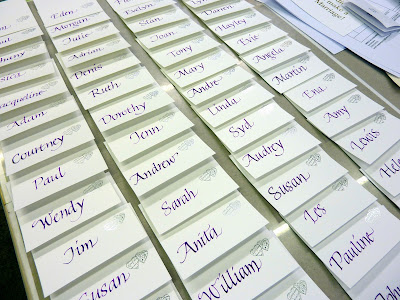 Eden
Morgan
Julie
Adrian
Denis
Ruth
Dorothy
Jenn
Andrew
Sarah
Anita
William
Evelyn
Stan
Joan
Tony
Mary
Andre
Linda
Syd
Audrey
Susan
Les
Pauline
Darren
Hayley
Evie
Angela
Martin
Ena
Amy
Louis
Jacqueline
Adam
Courtney
Paul
Wendy
Jim
Susan